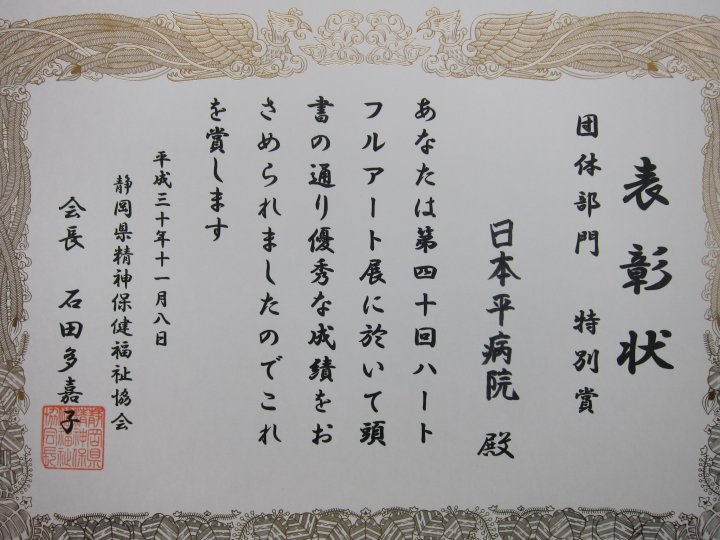 表彰状
団体部門 特別賞
日本平病院 殿
あなたは第四十回ハート
フルアート展に於いて頭
書の通り優秀な成績をお
さめられましたのでこれ
を賞します
平成三十年十一月八日
静岡県精神保健福祉協会
会長 石田多嘉子